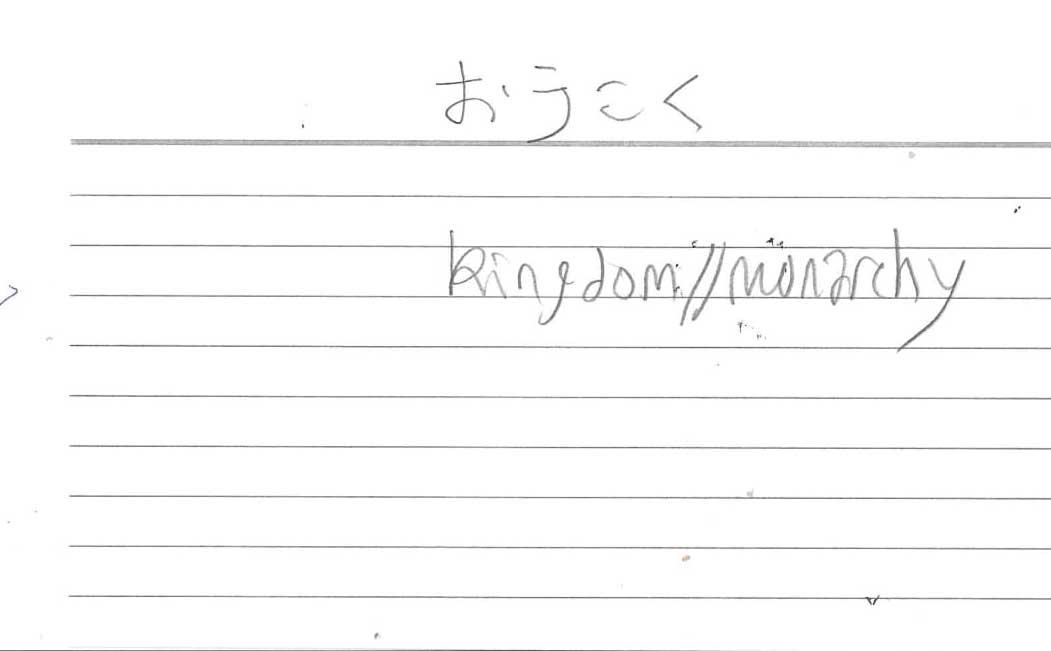 おうこく
kingdom//monarchy